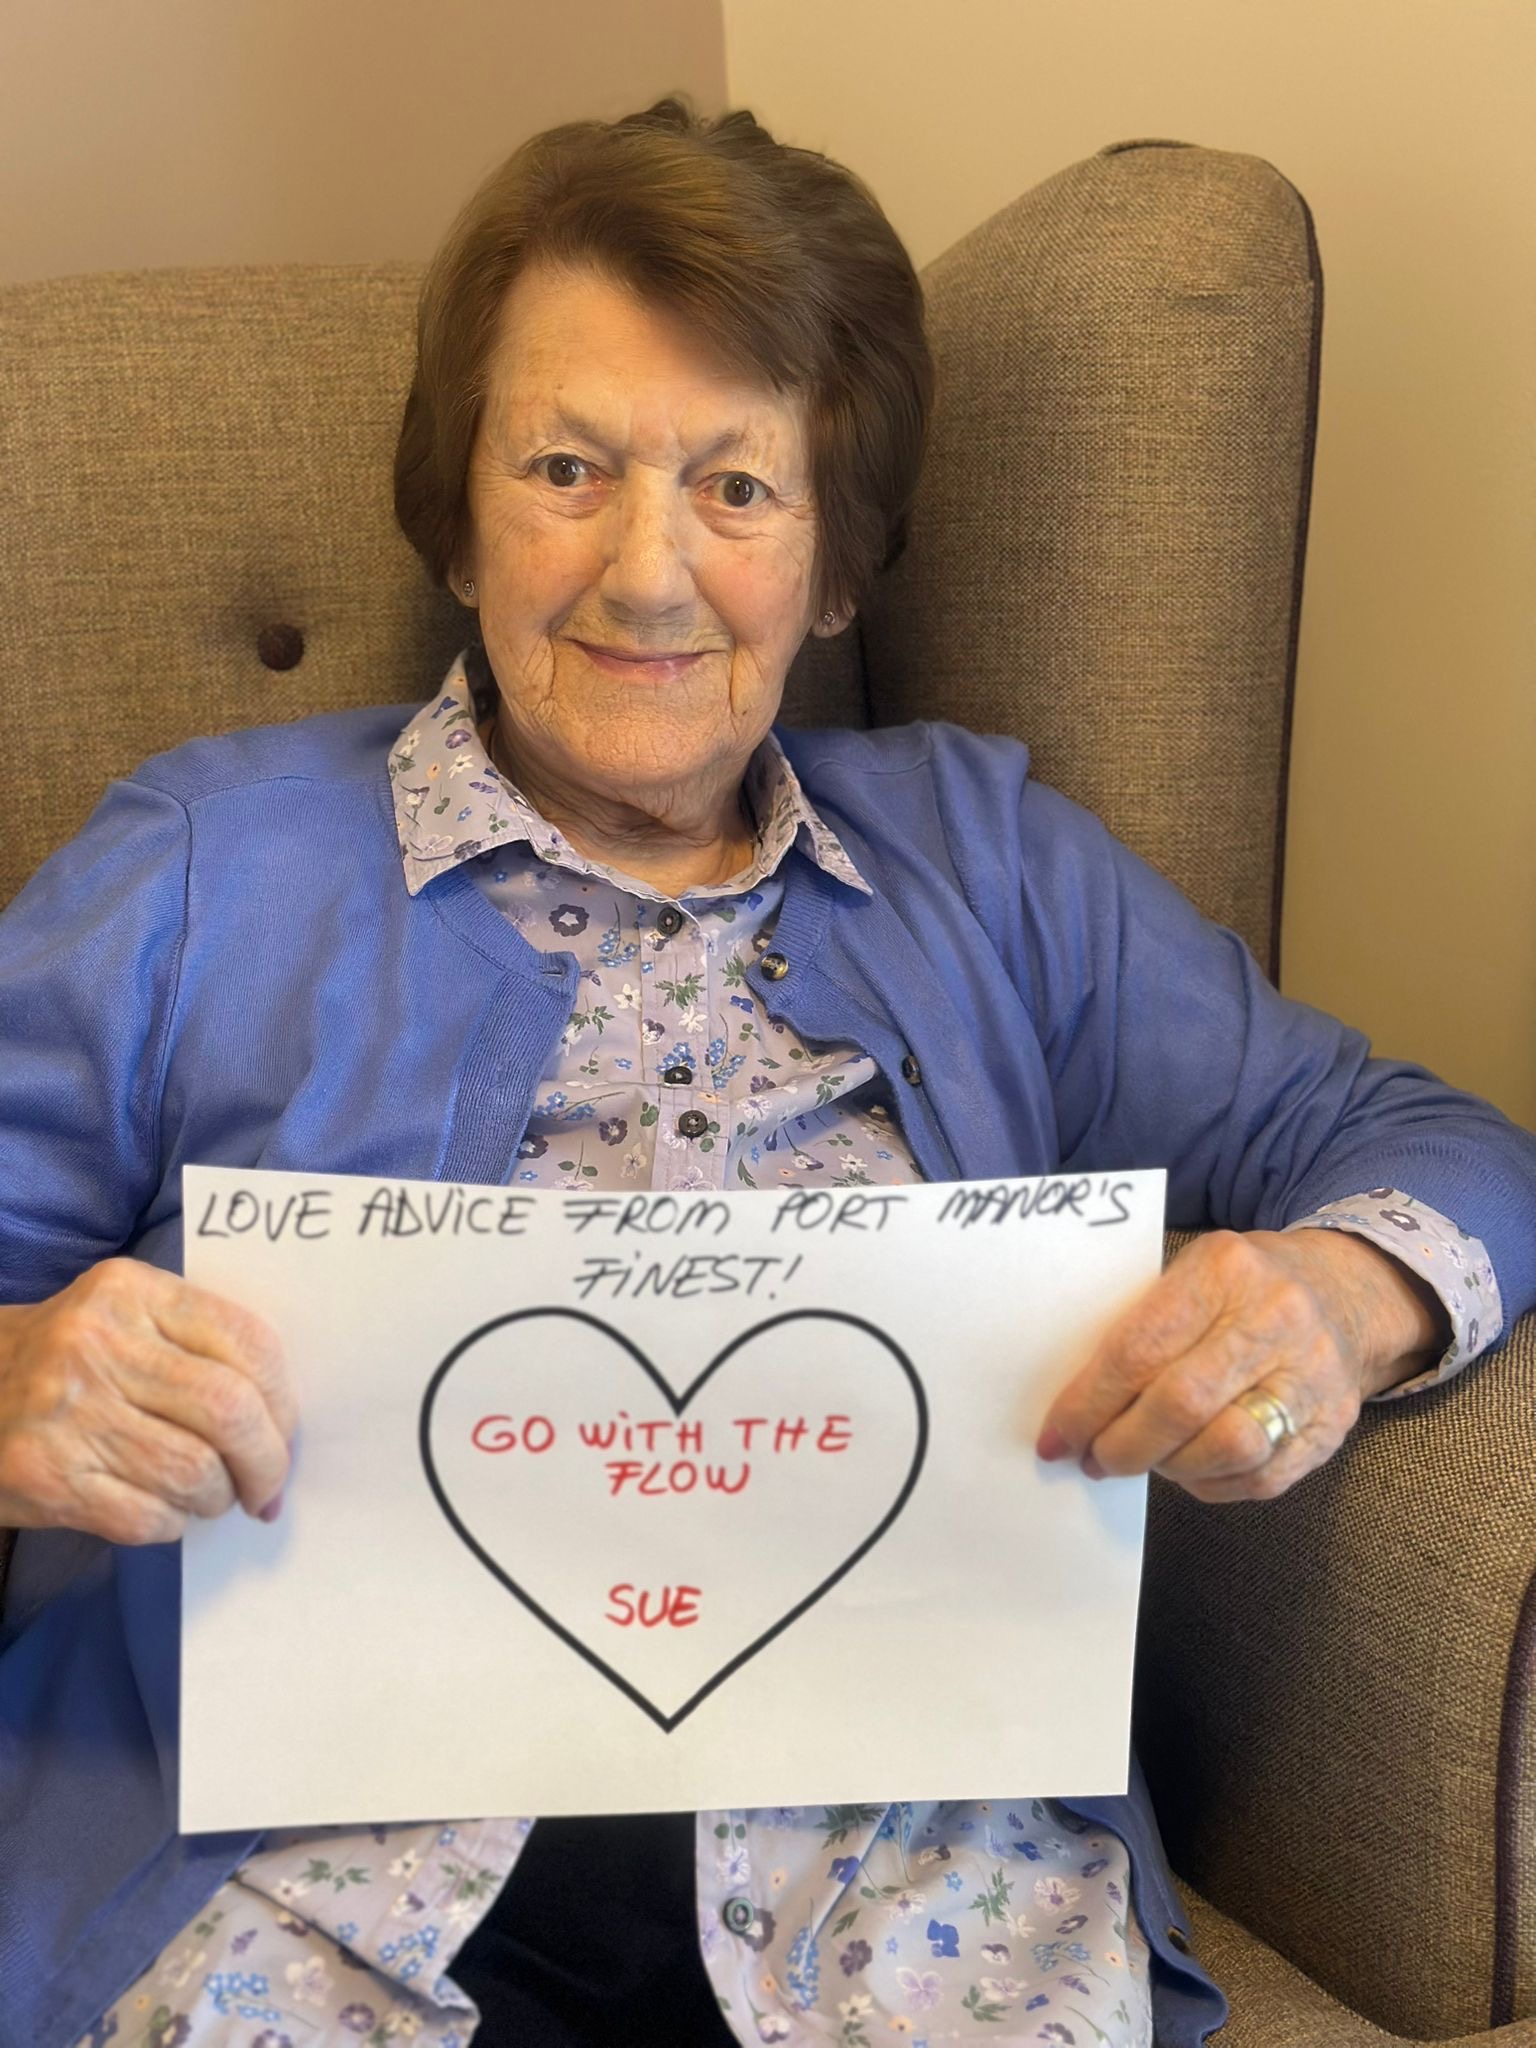 LOVE ADVICE FROM PORT MANOR'S
FINEST!
GO WITH THE
FLOW
SUE